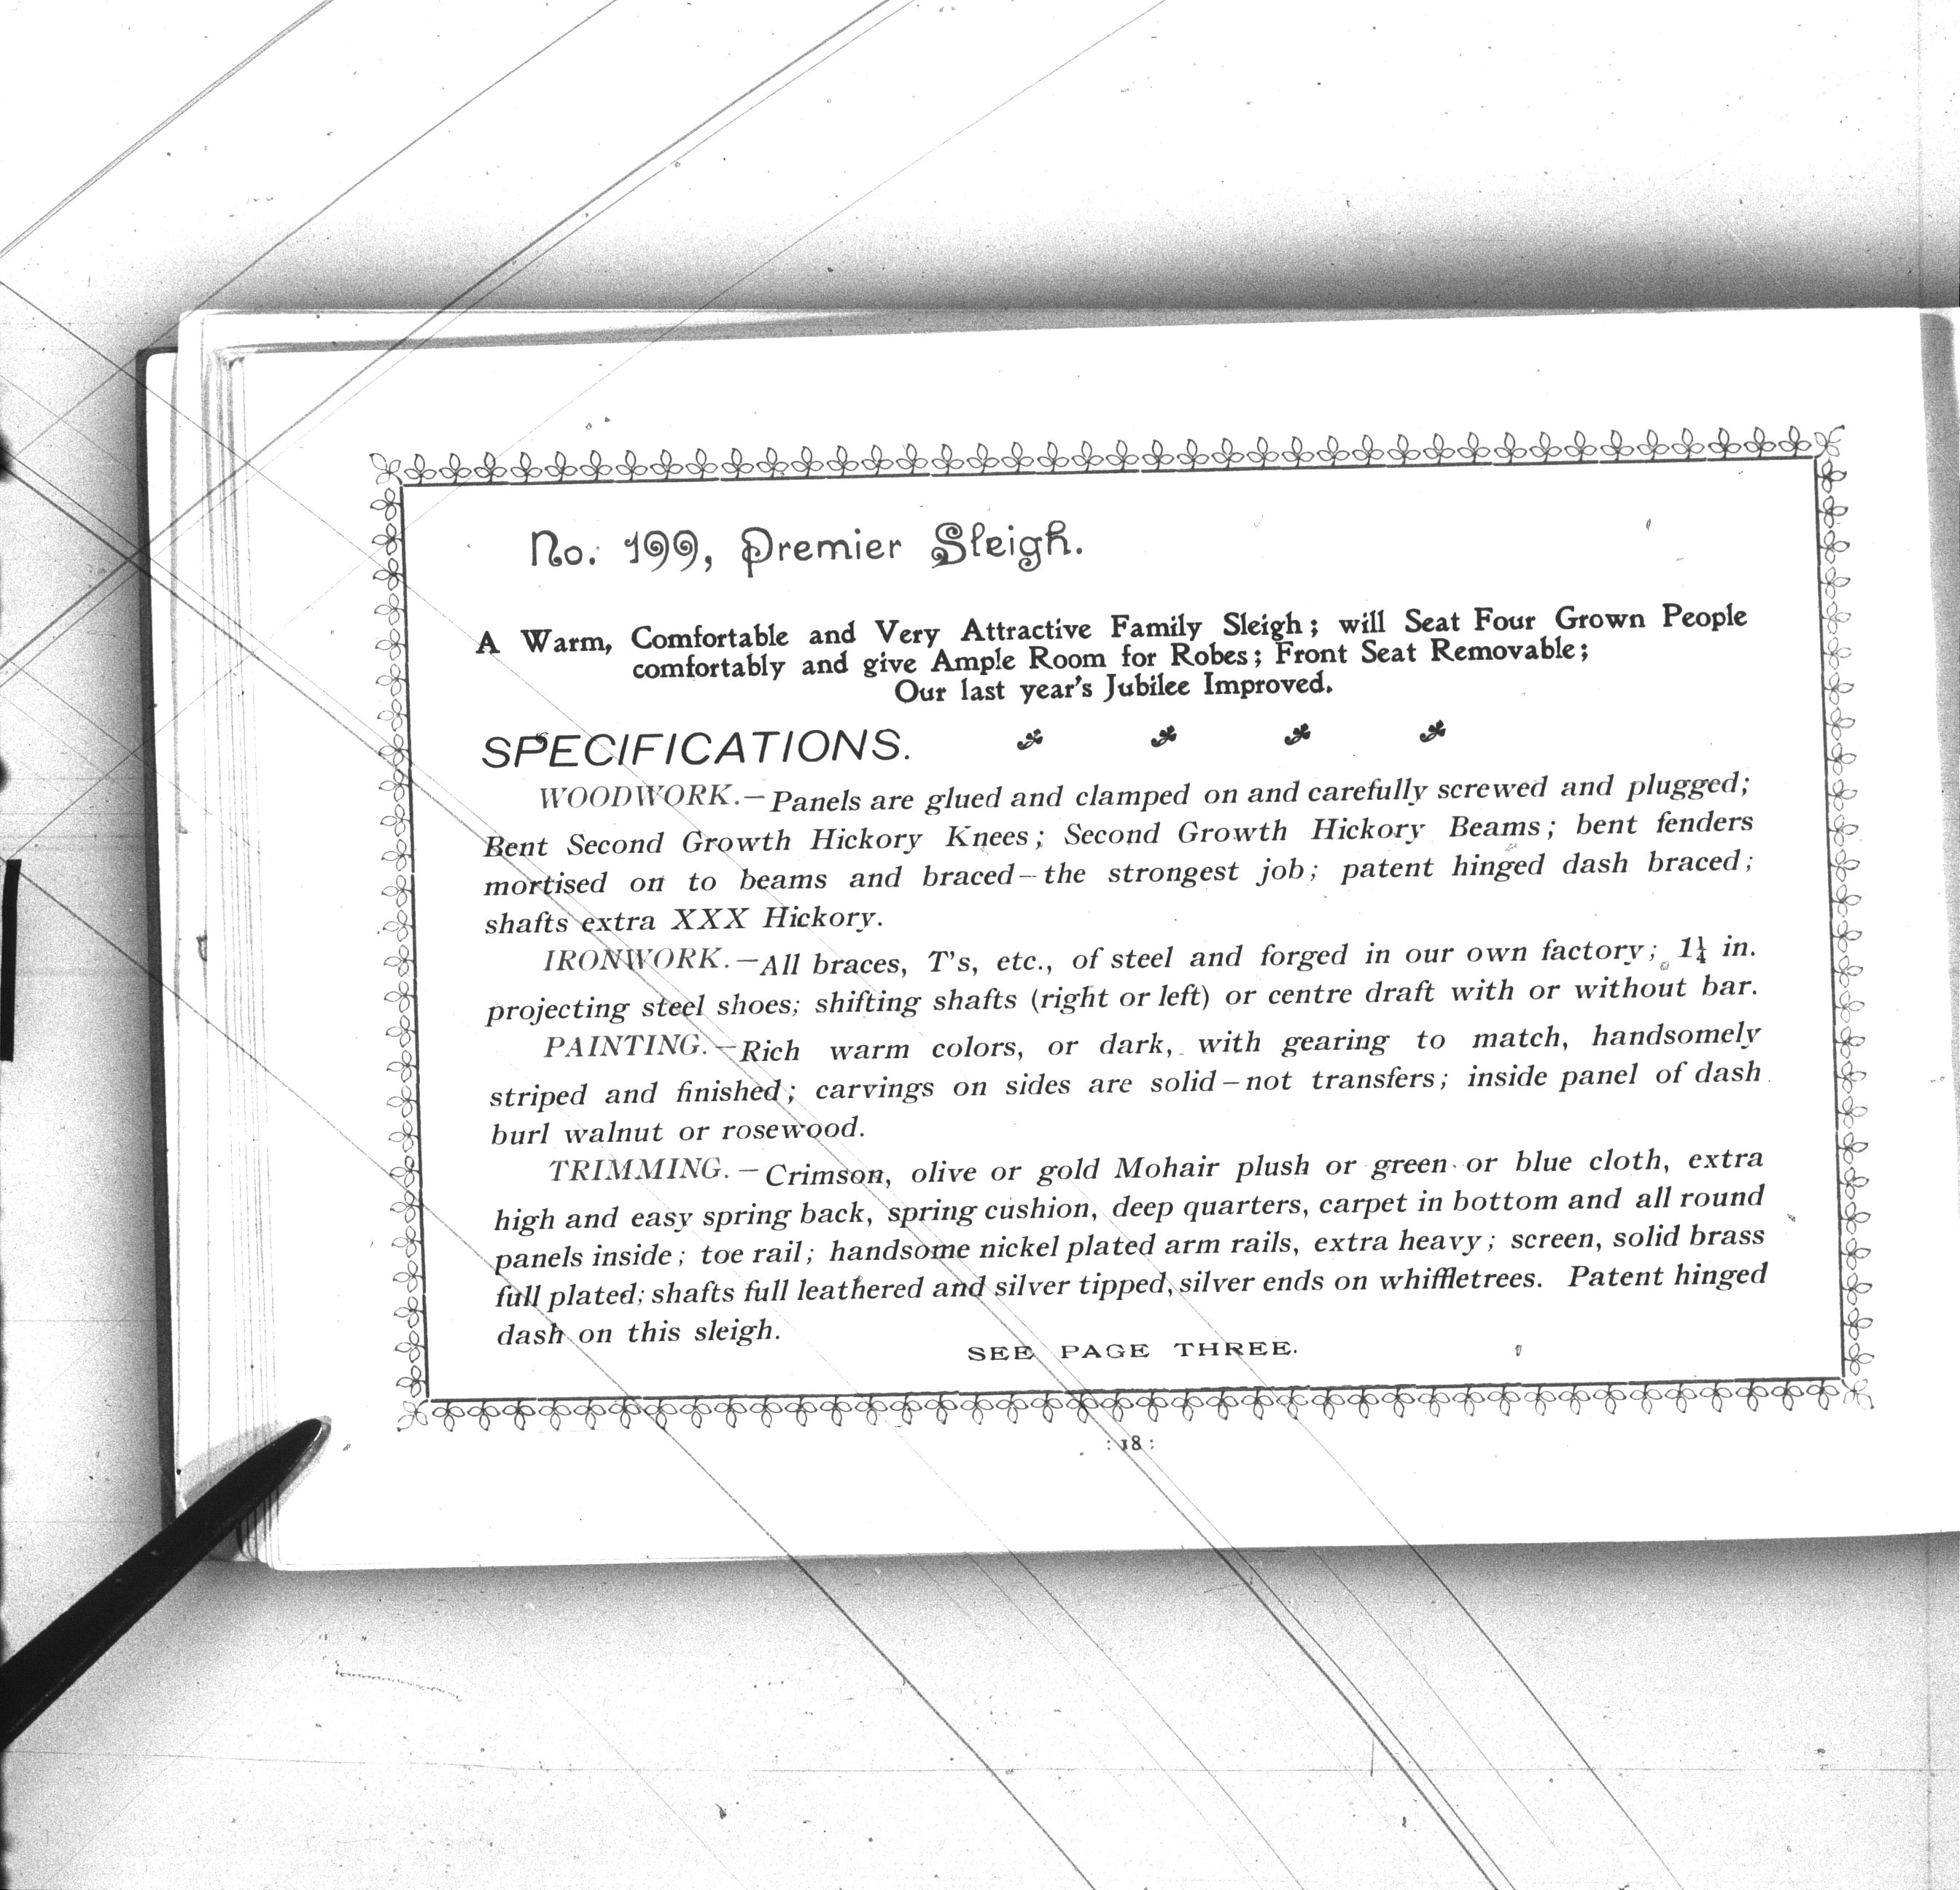 No. 199, Premier Sleigh.
A Warm, Comfortable and Very Attractive Family Sleigh; will Seat Four Grown People
comfortably and give Ample Room for Robes; Front Seat Removable;
Our last year's Jubilee Improved.
SPECIFICATIONS.
WOODWORK.—Panels are glued and clamped on and carefully screwed and plugged;
Bent Second Growth Hickory Knees; Second Growth Hickory Beams; bent fenders
mortised on to beams and braced—the strongest job; patent hinged dash braced;
shafts extra XXX Hickory.
IRONWORK.—All braces, T's, etc., of steel and forged in our own factory; 1¼ in.
projecting steel shoes; shifting shafts (right or left) or centre draft with or without bar.
PAINTING.—Rich warm colors, or dark, with gearing to match, handsomely
striped and finished; carvings on sides are solid—not transfers; inside panel of dash
burl walnut or rosewood.
TRIMMING.—Crimson, olive or gold Mohair plush or green or blue cloth, extra
high and easy spring back, spring cushion, deep quarters, carpet in bottom and all round
panels inside; toe rail; handsome nickel plated arm rails, extra heavy; screen, solid brass
full plated; shafts full leathered and silver tipped, silver ends on whiffletrees. Patent hinged
dash on this sleigh.
SEE PAGE THREE.
:18: